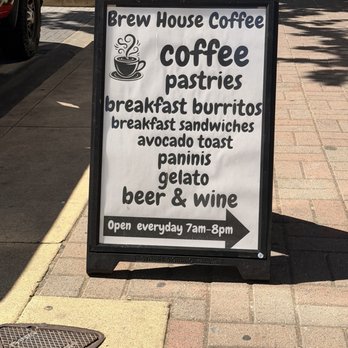 Brew House Coffee
coffee
pastries
breakfast burritos
breakfast sandwiches
avocado toast
paninis
gelato
beer & wine
Open everyday 7am-8pm